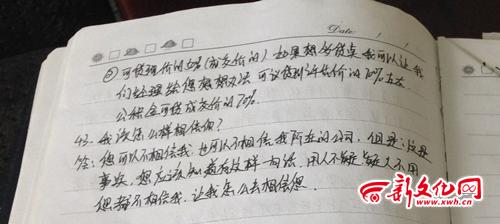 Date: / /
②可贷现价的吗(成交价的)如果想多贷点我可以让我
们经理给您想想办法 可以贷到评估价的70%左右
公积金可贷成交价的70%.
43. 我该怎么样相信你?
答: 您可以不相信我. 也可以不相信我所在的公司, 但是: 这是
事实, 您应该知道有这样一句话. 用人不疑 疑人不用
您都不相信我, 让我怎么去相信您.
新文化网
www.xwh.cn